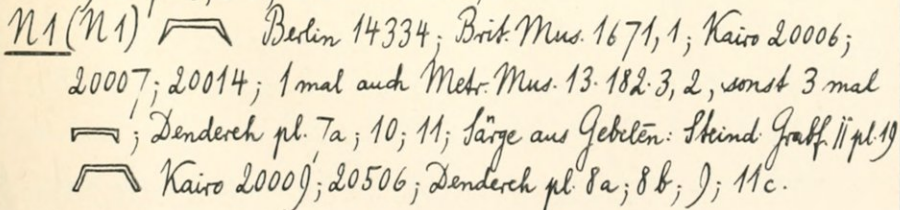 N1 (N1) Berlin 14334; Brit. Mus. 1671,1; Kairo 20006;
20007; 20014; 1 mal auch Metr. Mus. 13.182.3, 2, sonst 3 mal
; Dendereh pl. 7a; 10; 11; Särge aus Gebelēn: Steind. Grabf. II pl. 19
Kairo 20009; 20506; Dendereh pl. 8a; 8b; 9; 11c.